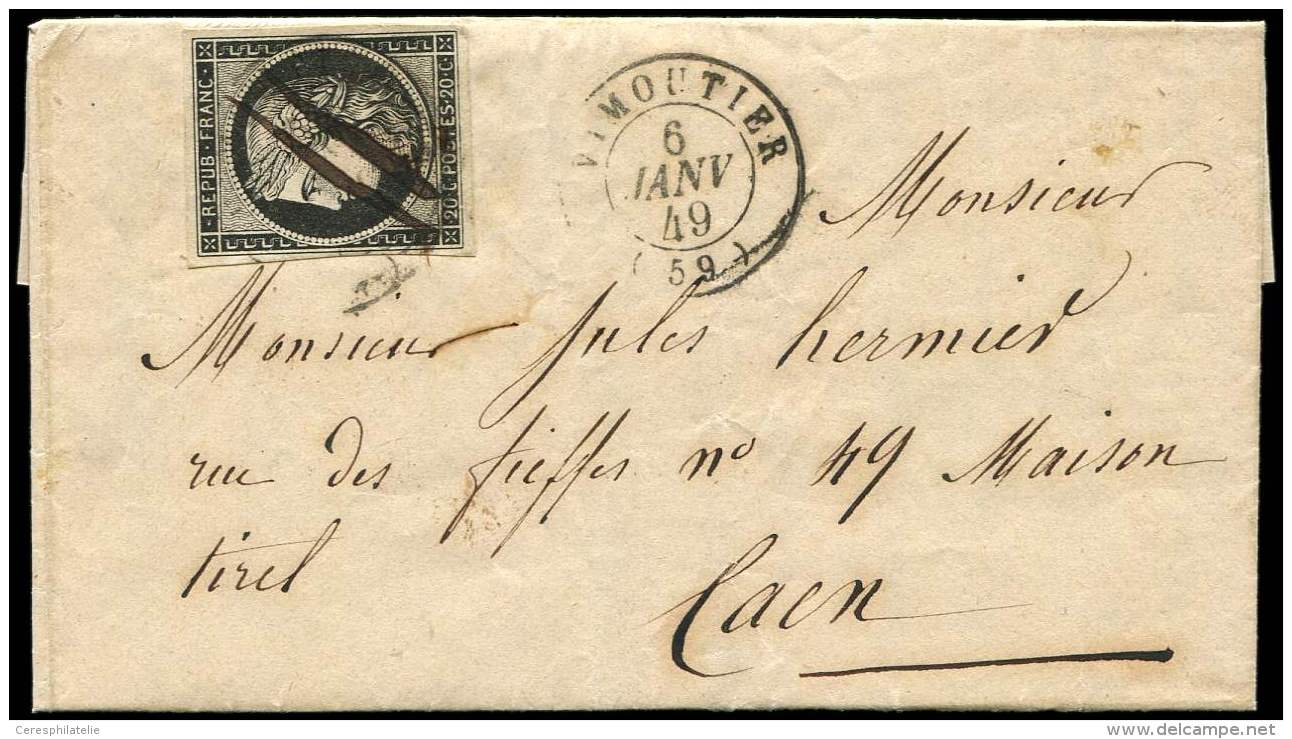 REPUB·FRANC·
20·C·POSTES·20·C·
VIMOUTIER
6
JANV
49
(59)
Monsieur
Monsieur Jules hermier
rue des fieffes n° 49 Maison
tirel
Caen
Ceresphilatelie
delcampe.net